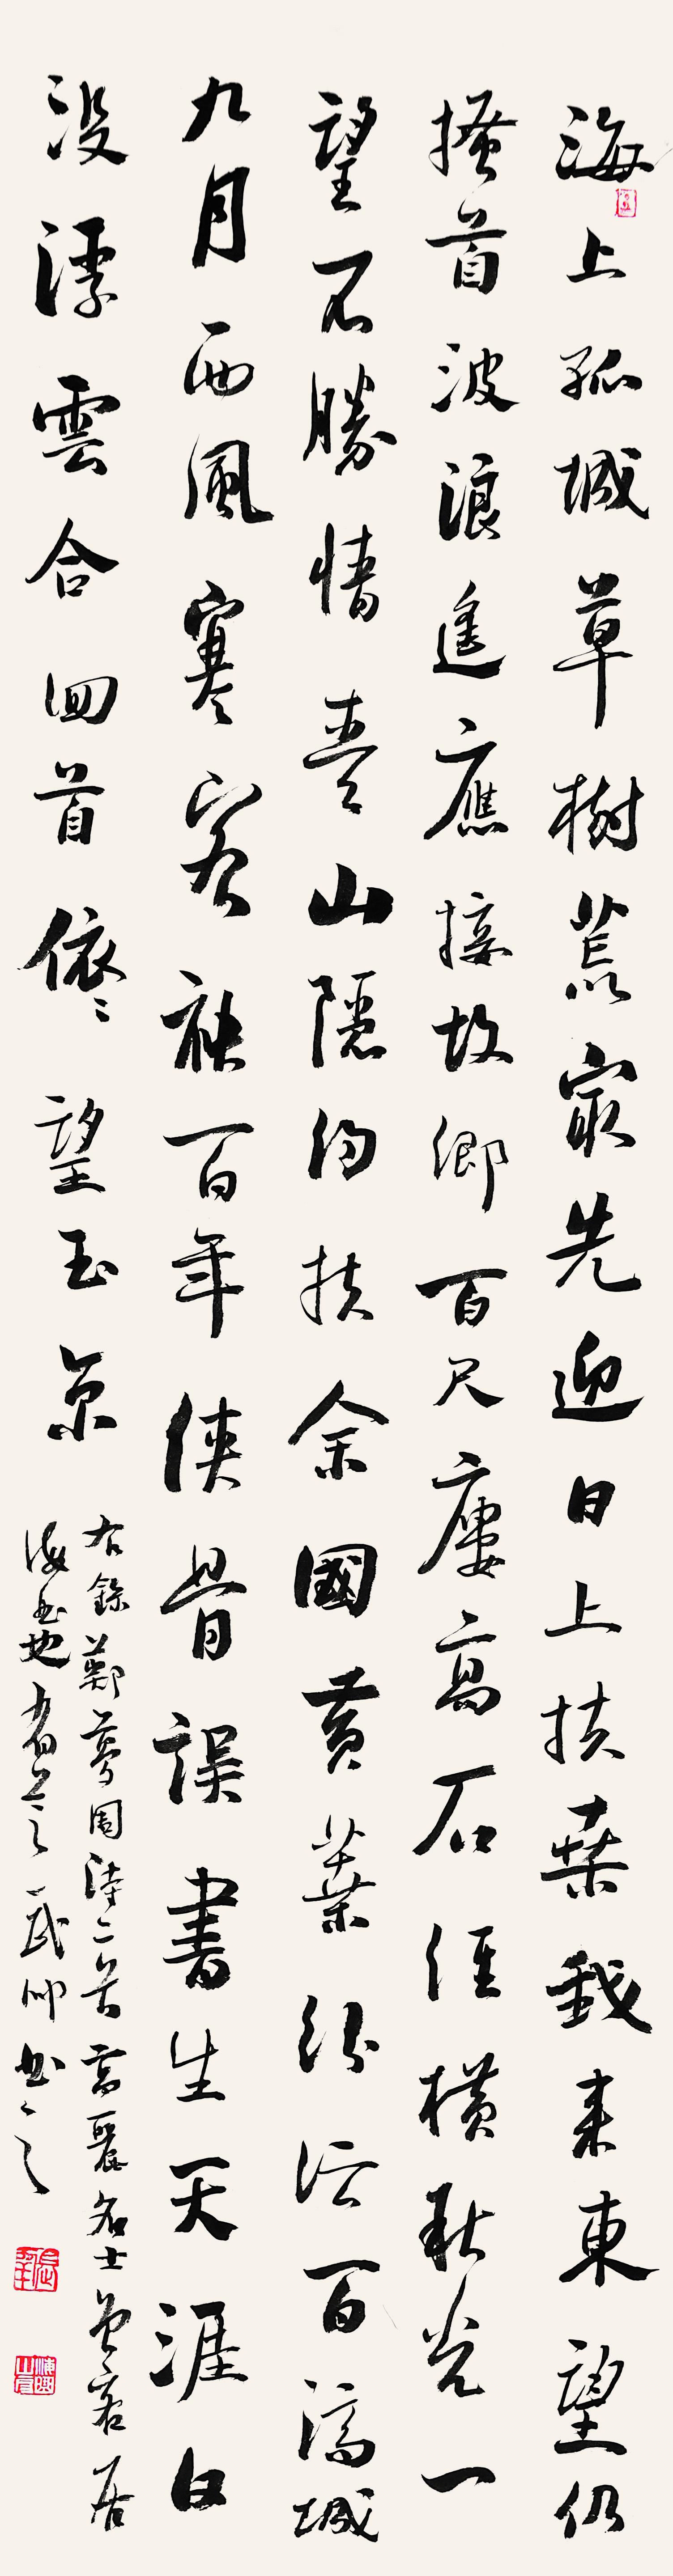 海上孤城草樹荒最先迎日上扶桑我來東望仍
搔首波浪遙應接故鄉百尺廔高石徑橫秋光一
望不勝情青山隱約扶余國黃葉紛百濟城
九月西風寒客袂百年俠骨誤書生天涯日
沒浮雲合回首依々望玉京
右錄鄭夢周詩二首高麗名士曾客居
海也書之